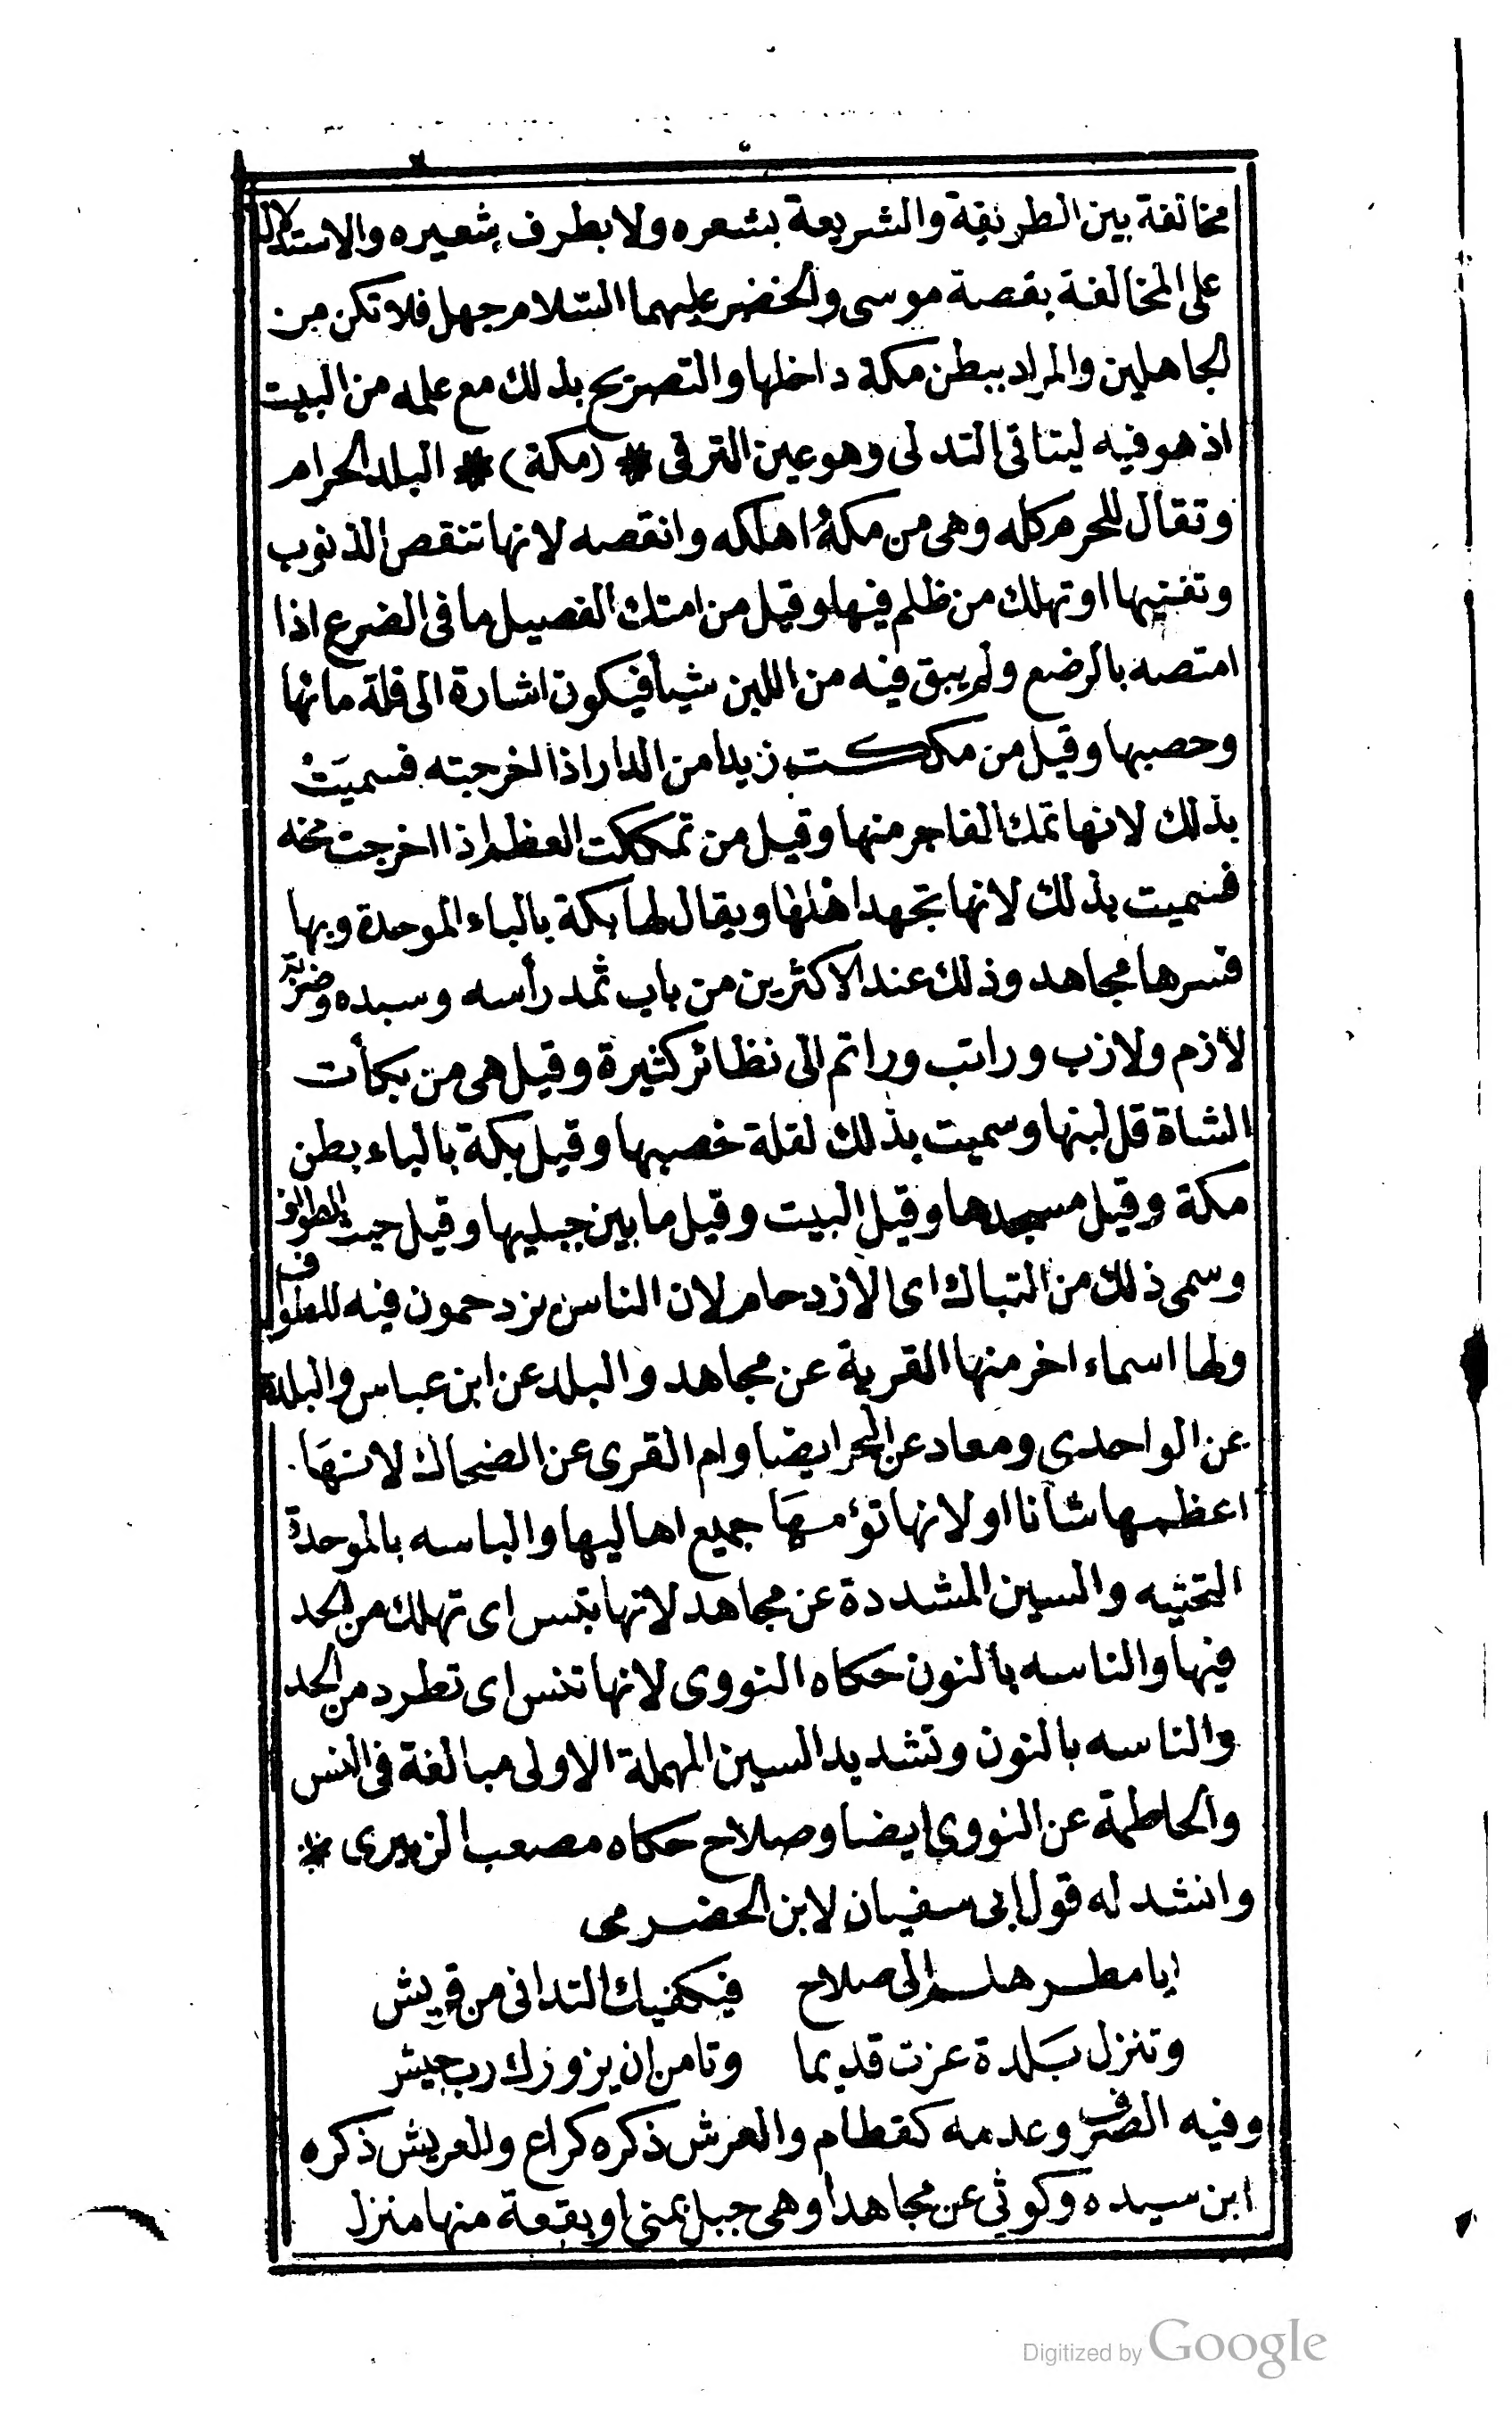 مخالفة بين الطريقة والشريعة بشعره ولا بطرف شعيره والاستدلال
على المخالفة بقصة موسى والخضر عليهما السلام جهل فلا تكن من
الجاهلين والمراد ببطن مكة داخلها والتصريح بذلك مع علمه من البيت
اذ هو فيه ليتاتى التدلى وهو عين الترقى * (مكة) * البلد الحرام
وتقال للحرم كله وهى من مكهُ اهلكه وانقصه لانها تنقص الذنوب
وتفنيها او تهلك من ظلم فيها وقيل من امتك الفصيل ما فى الضرع اذا
امتصه بالرضع ولم يبق فيه من اللبن شيأ فيكون اشارة الى قلة مائها
وحصبها وقيل من مككت زيدا من الدار اذا اخرجته فسميَتْ
بذلك لانها تمك الفاجر منها وقيل من تمككت العظم اذا اخرجت مخه
فسميت بذلك لانها تجهد اهلها ويقال لها بكة بالباء الموحدة وبها
فسرها مجاهد وذلك عند الاكثرين من باب ثمد رأسه وسبده وضربة
لازم ولازب وراتب وراتم الى نظائر كثيرة وقيل هى من بكأت
الشاة قل لبنها وسميت بذلك لقلة خصبها وقيل بكة بالباء بطن
مكة وقيل مسجدها وقيل البيت وقيل ما بين جبليها وقيل حيث الطواف
وسمى ذلك من التباك اى الازدحام لان الناس يزدحمون فيه للطواف
ولها اسماء اخر منها القرية عن مجاهد والبلد عن ابن عباس والبلدة
عن الواحدى ومعاد عن البحر ايضا وام القرى عن الضحاك لانهَا
اعظمها شأنا او لانها تؤمهَا جميع اهاليها والباسه بالموحدة
التحتيه والسين المشددة عن مجاهد لانها تبس اى تهلك من الحد
فيها والناسه بالنون حكاه النووى لانها تنس اى تطرد من الحد
والناسه بالنون وتشديد السين المهملة الاولى مبالغة فى النس
والحاطمة عن النووى ايضا وصلاح حكاه مصعب الزبيرى *
وانشد له قول ابى سفيان لابن الحضرمى
ايا مطر هلم الى صلاح فيكفيك التدانى من قريش
وتنزل بَلدة عزت قديما وتامن ان يزورك رب جيش
وفيه الصرف وعدمه كقطام والعرش ذكره كراع والعريش ذكره
ابن سيده وكوثى عن مجاهد وهى جبل بمنى او بقعة منها منزل
Digitized by Google